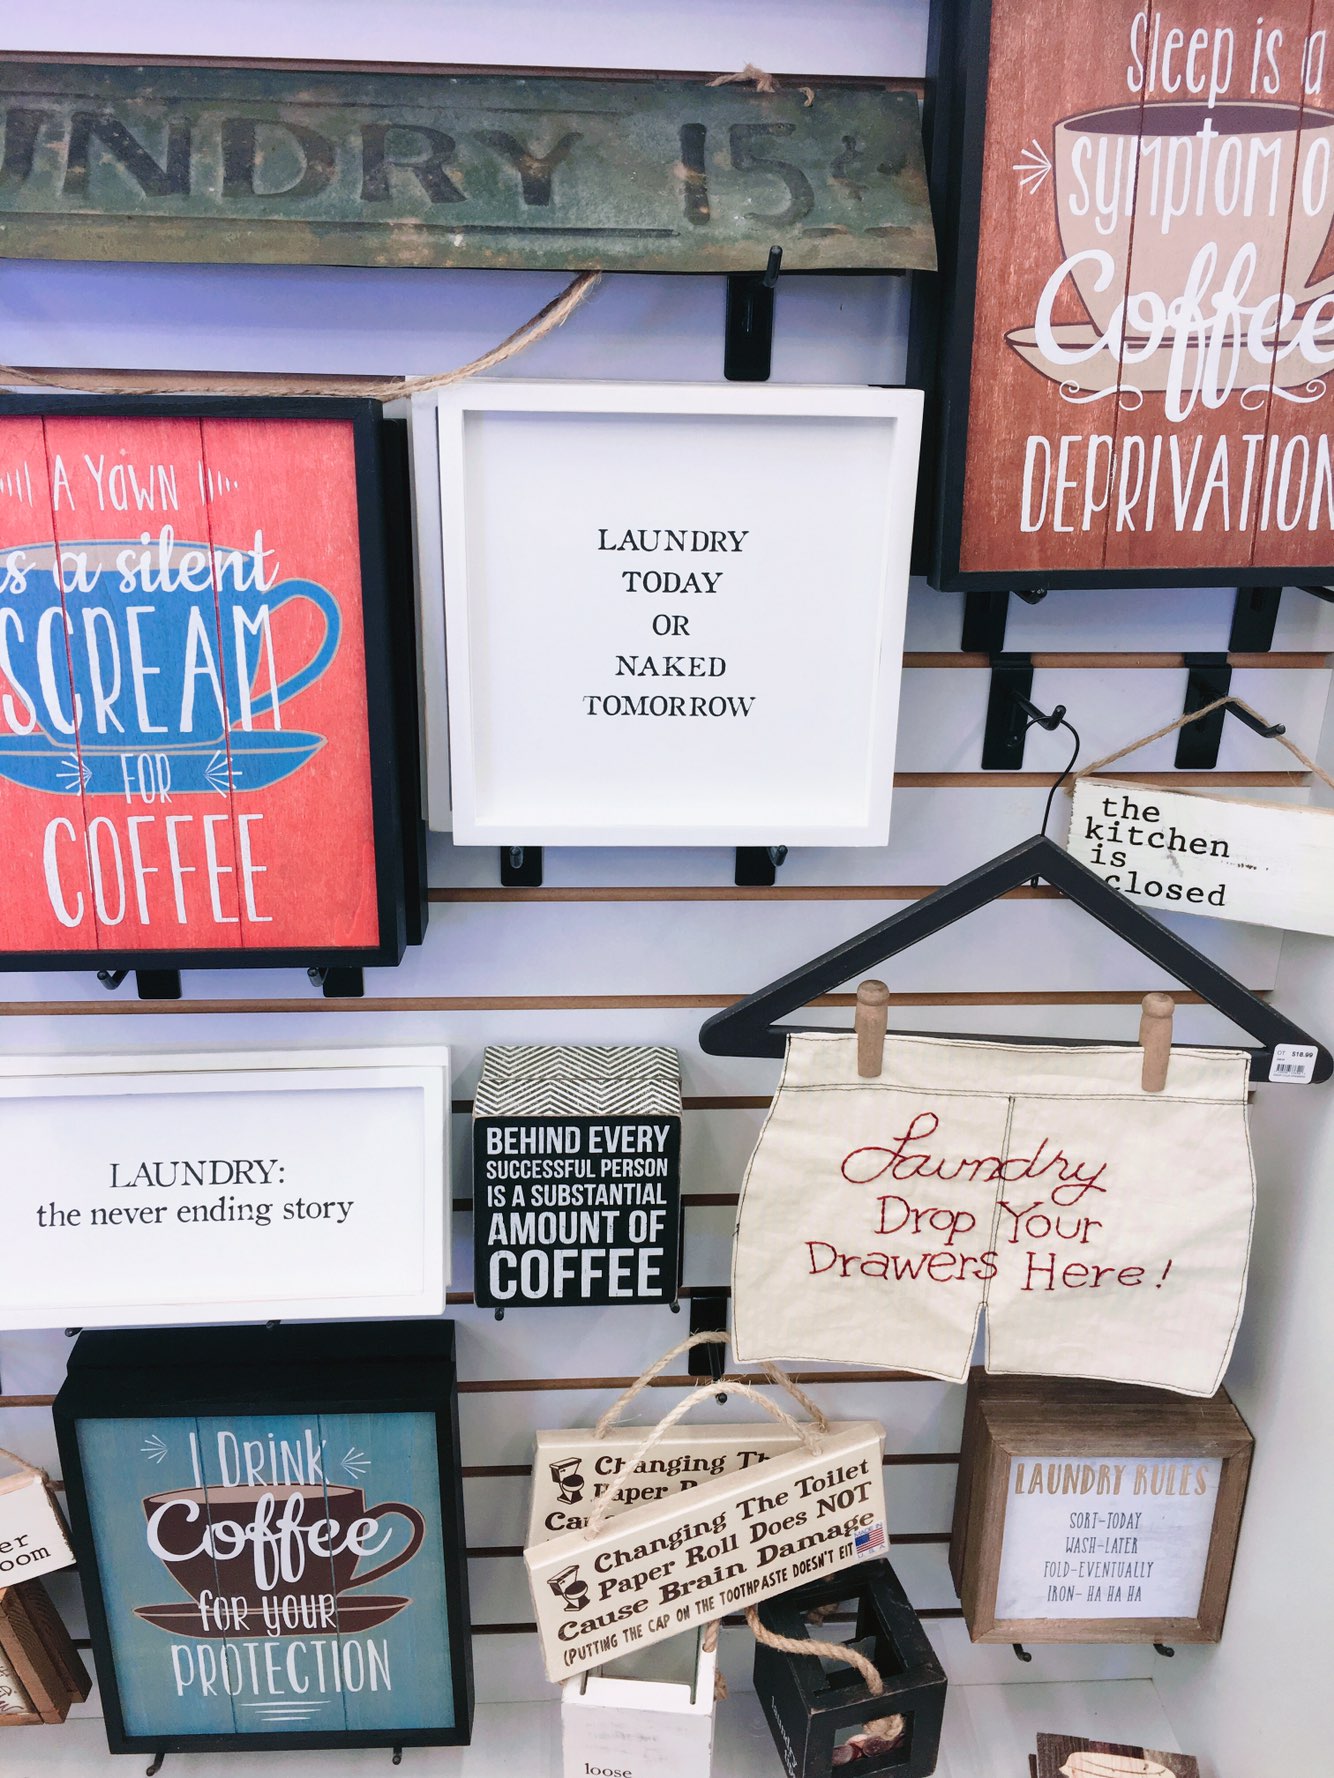 UNDRY 15¢
Sleep is a
symptom o
Coffee
DEPRIVATION
A YAWN
is a silent
SCREAM
FOR
COFFEE
LAUNDRY
TODAY
OR
NAKED
TOMORROW
the
kitchen
is
closed
LAUNDRY:
the never ending story
BEHIND EVERY
SUCCESSFUL PERSON
IS A SUBSTANTIAL
AMOUNT OF
COFFEE
$18.99
Laundry
Drop Your
Drawers Here!
I DRINK
Coffee
for your
PROTECTION
er
oom
Changing Th
Paper R
Cau
Changing The Toilet
Paper Roll Does NOT
Cause Brain Damage
(PUTTING THE CAP ON THE TOOTHPASTE DOESN'T EIT
MADE IN
U.S.A.
LAUNDRY RULES
SORT-TODAY
WASH-LATER
FOLD-EVENTUALLY
IRON- HA HA HA
loose